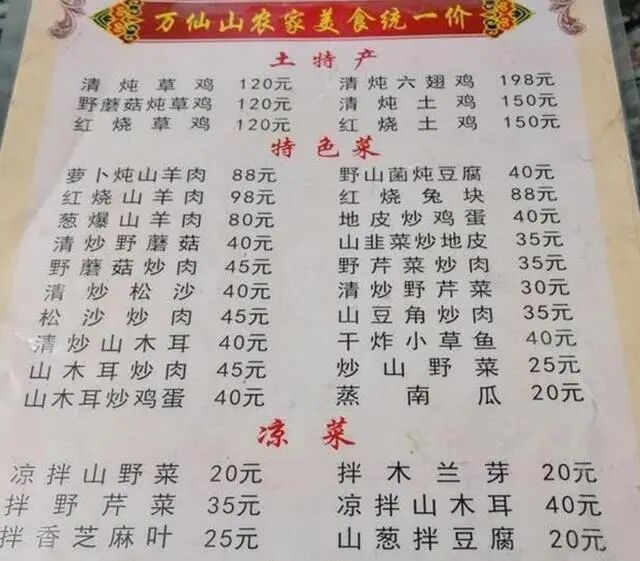 万仙山农家美食统一价
土特产
清炖草鸡 120元 清炖六翅鸡 198元
野蘑菇炖草鸡 120元 清炖土鸡 150元
红烧草鸡 120元 红烧土鸡 150元
特色菜
萝卜炖山羊肉 88元 野山菌炖豆腐 40元
红烧山羊肉 98元 红烧兔块 88元
葱爆山羊肉 80元 地皮炒鸡蛋 40元
清炒野蘑菇 40元 山韭菜炒地皮 35元
野蘑菇炒肉 45元 野芹菜炒肉 35元
清炒松沙 40元 清炒野芹菜 30元
松沙炒肉 45元 山豆角炒肉 35元
清炒山木耳 40元 干炸小草鱼 40元
山木耳炒肉 45元 炒山野菜 25元
山木耳炒鸡蛋 40元 蒸南瓜 20元
凉菜
凉拌山野菜 20元 拌木兰芽 20元
拌野芹菜 35元 凉拌山木耳 40元
拌香芝麻叶 25元 山葱拌豆腐 20元